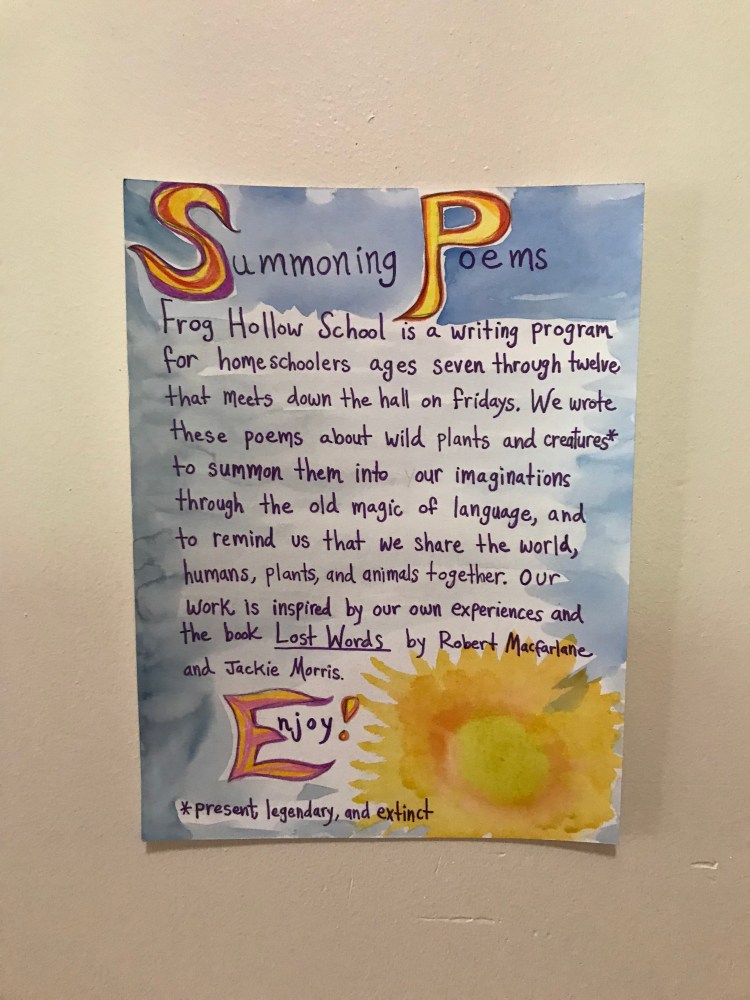 Summoning Poems
Frog Hollow School is a writing program
for homeschoolers ages seven through twelve
that meets down the hall on Fridays. We wrote
these poems about wild plants and creatures*
to summon them into our imaginations
through the old magic of language, and
to remind us that we share the world,
humans, plants, and animals together. Our
work is inspired by our own experiences and
the book Lost Words by Robert Macfarlane
and Jackie Morris.
Enjoy!
*present, legendary, and extinct